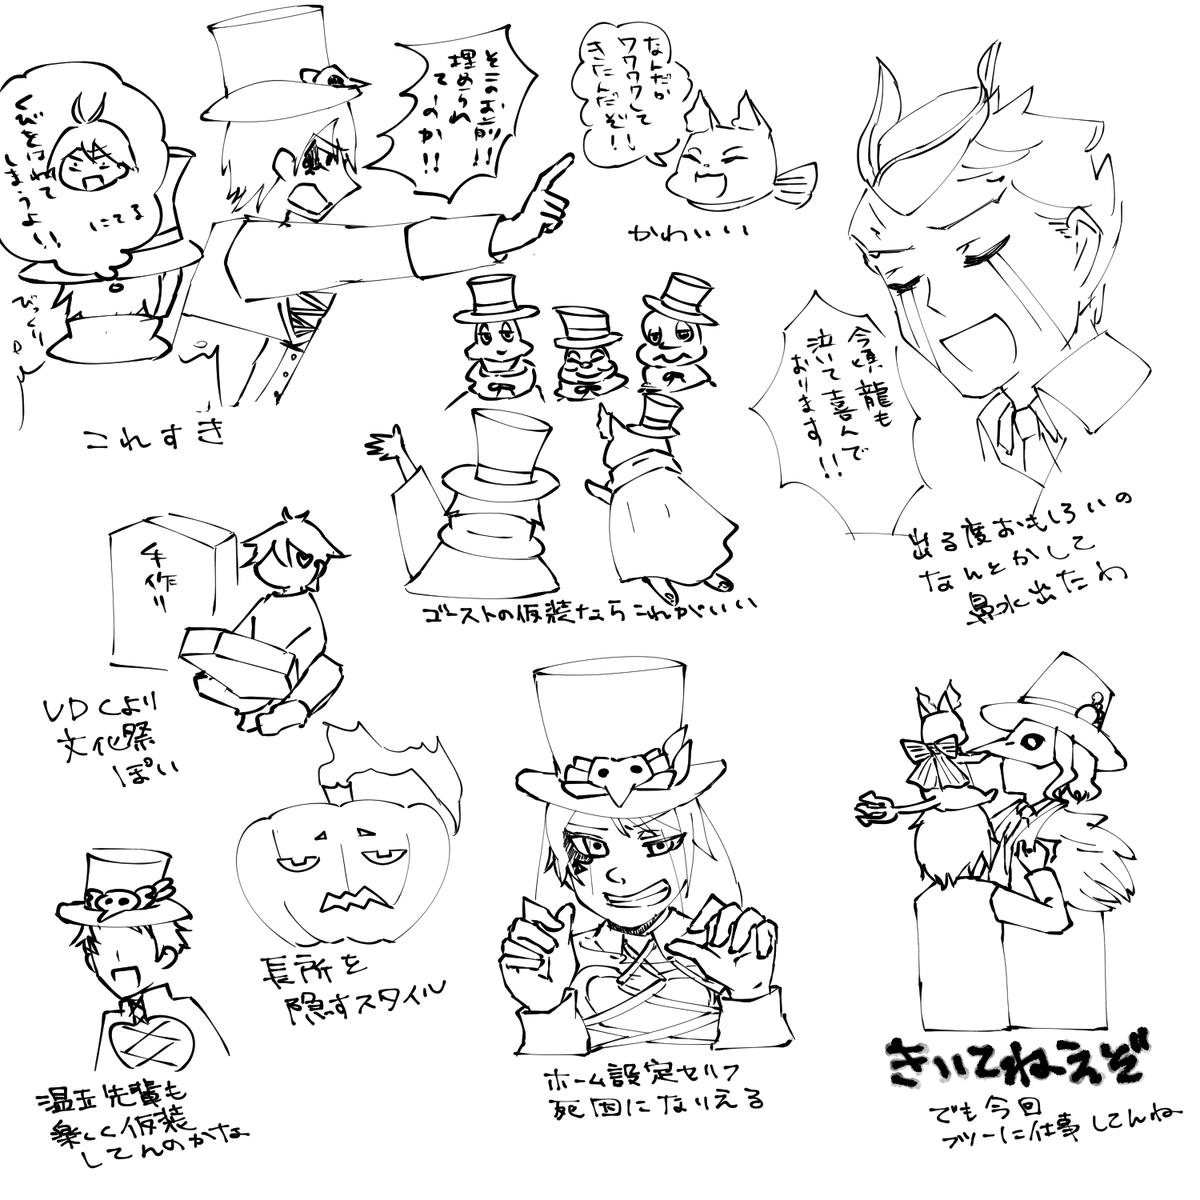 くびをはねて
しまうよ!!
にてる
びっくり
これすき
そこのお前!!
埋められ
てーのか!!
なんだか
ワクワクして
きたんだぞ!!
かわいい
今頃龍も
泣いて喜んで
おります!!
出る度おもしろいの
なんとかして
鼻水出たわ
ゴーストの仮装ならこれがいい
手作り
VDCより
文化祭
ぽい
長所を
隠すスタイル
温玉先輩も
楽しく仮装
してんのかな
ホーム設定セルフ
死因になりえる
きいてねえぞ
でも今回
フツーに仕事してんね